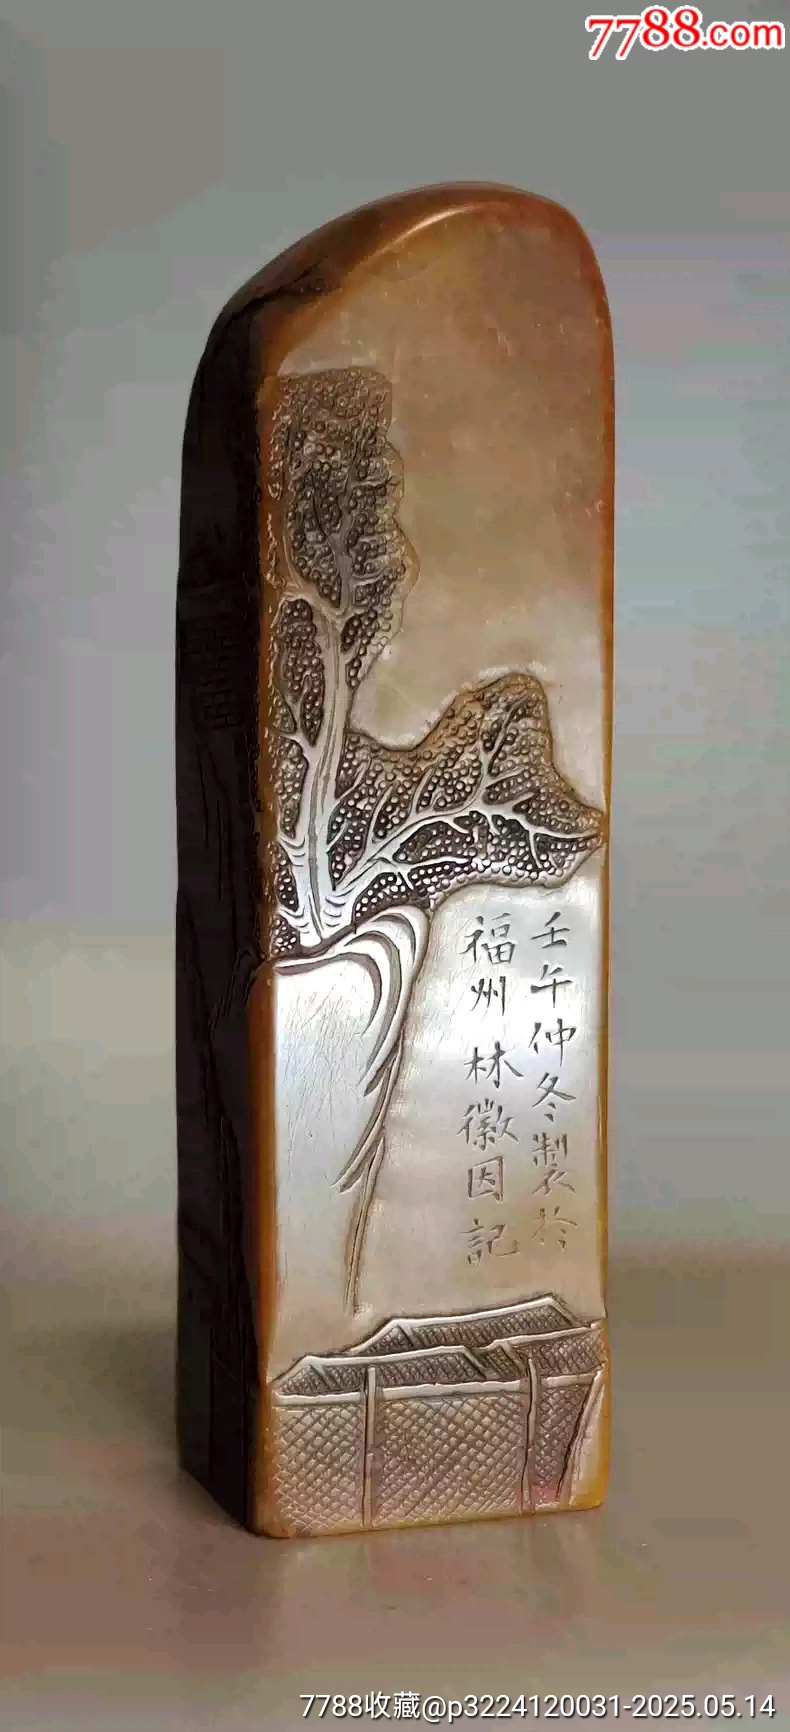 7788.com
壬午仲冬製於
福州林徽因記
7788收藏@p3224120031-2025.05.14